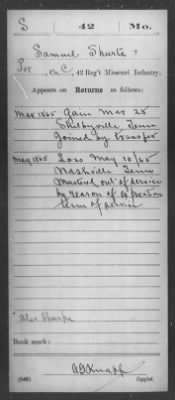 S 42 Mo.
Samuel Shurte *
Pvt, Co C, 42 Reg't Missouri Infantry.
Appears on Returns as follows:
Mar 1865 Gain Mar 28
Shelbyville Tenn
Joined by transfer
May 1865 Loss May 10/65
Nashville Tenn
Mustered out of service
by reason of Expiration
term of service
* Alex Sharpe
Book mark:
(546) Copyist.